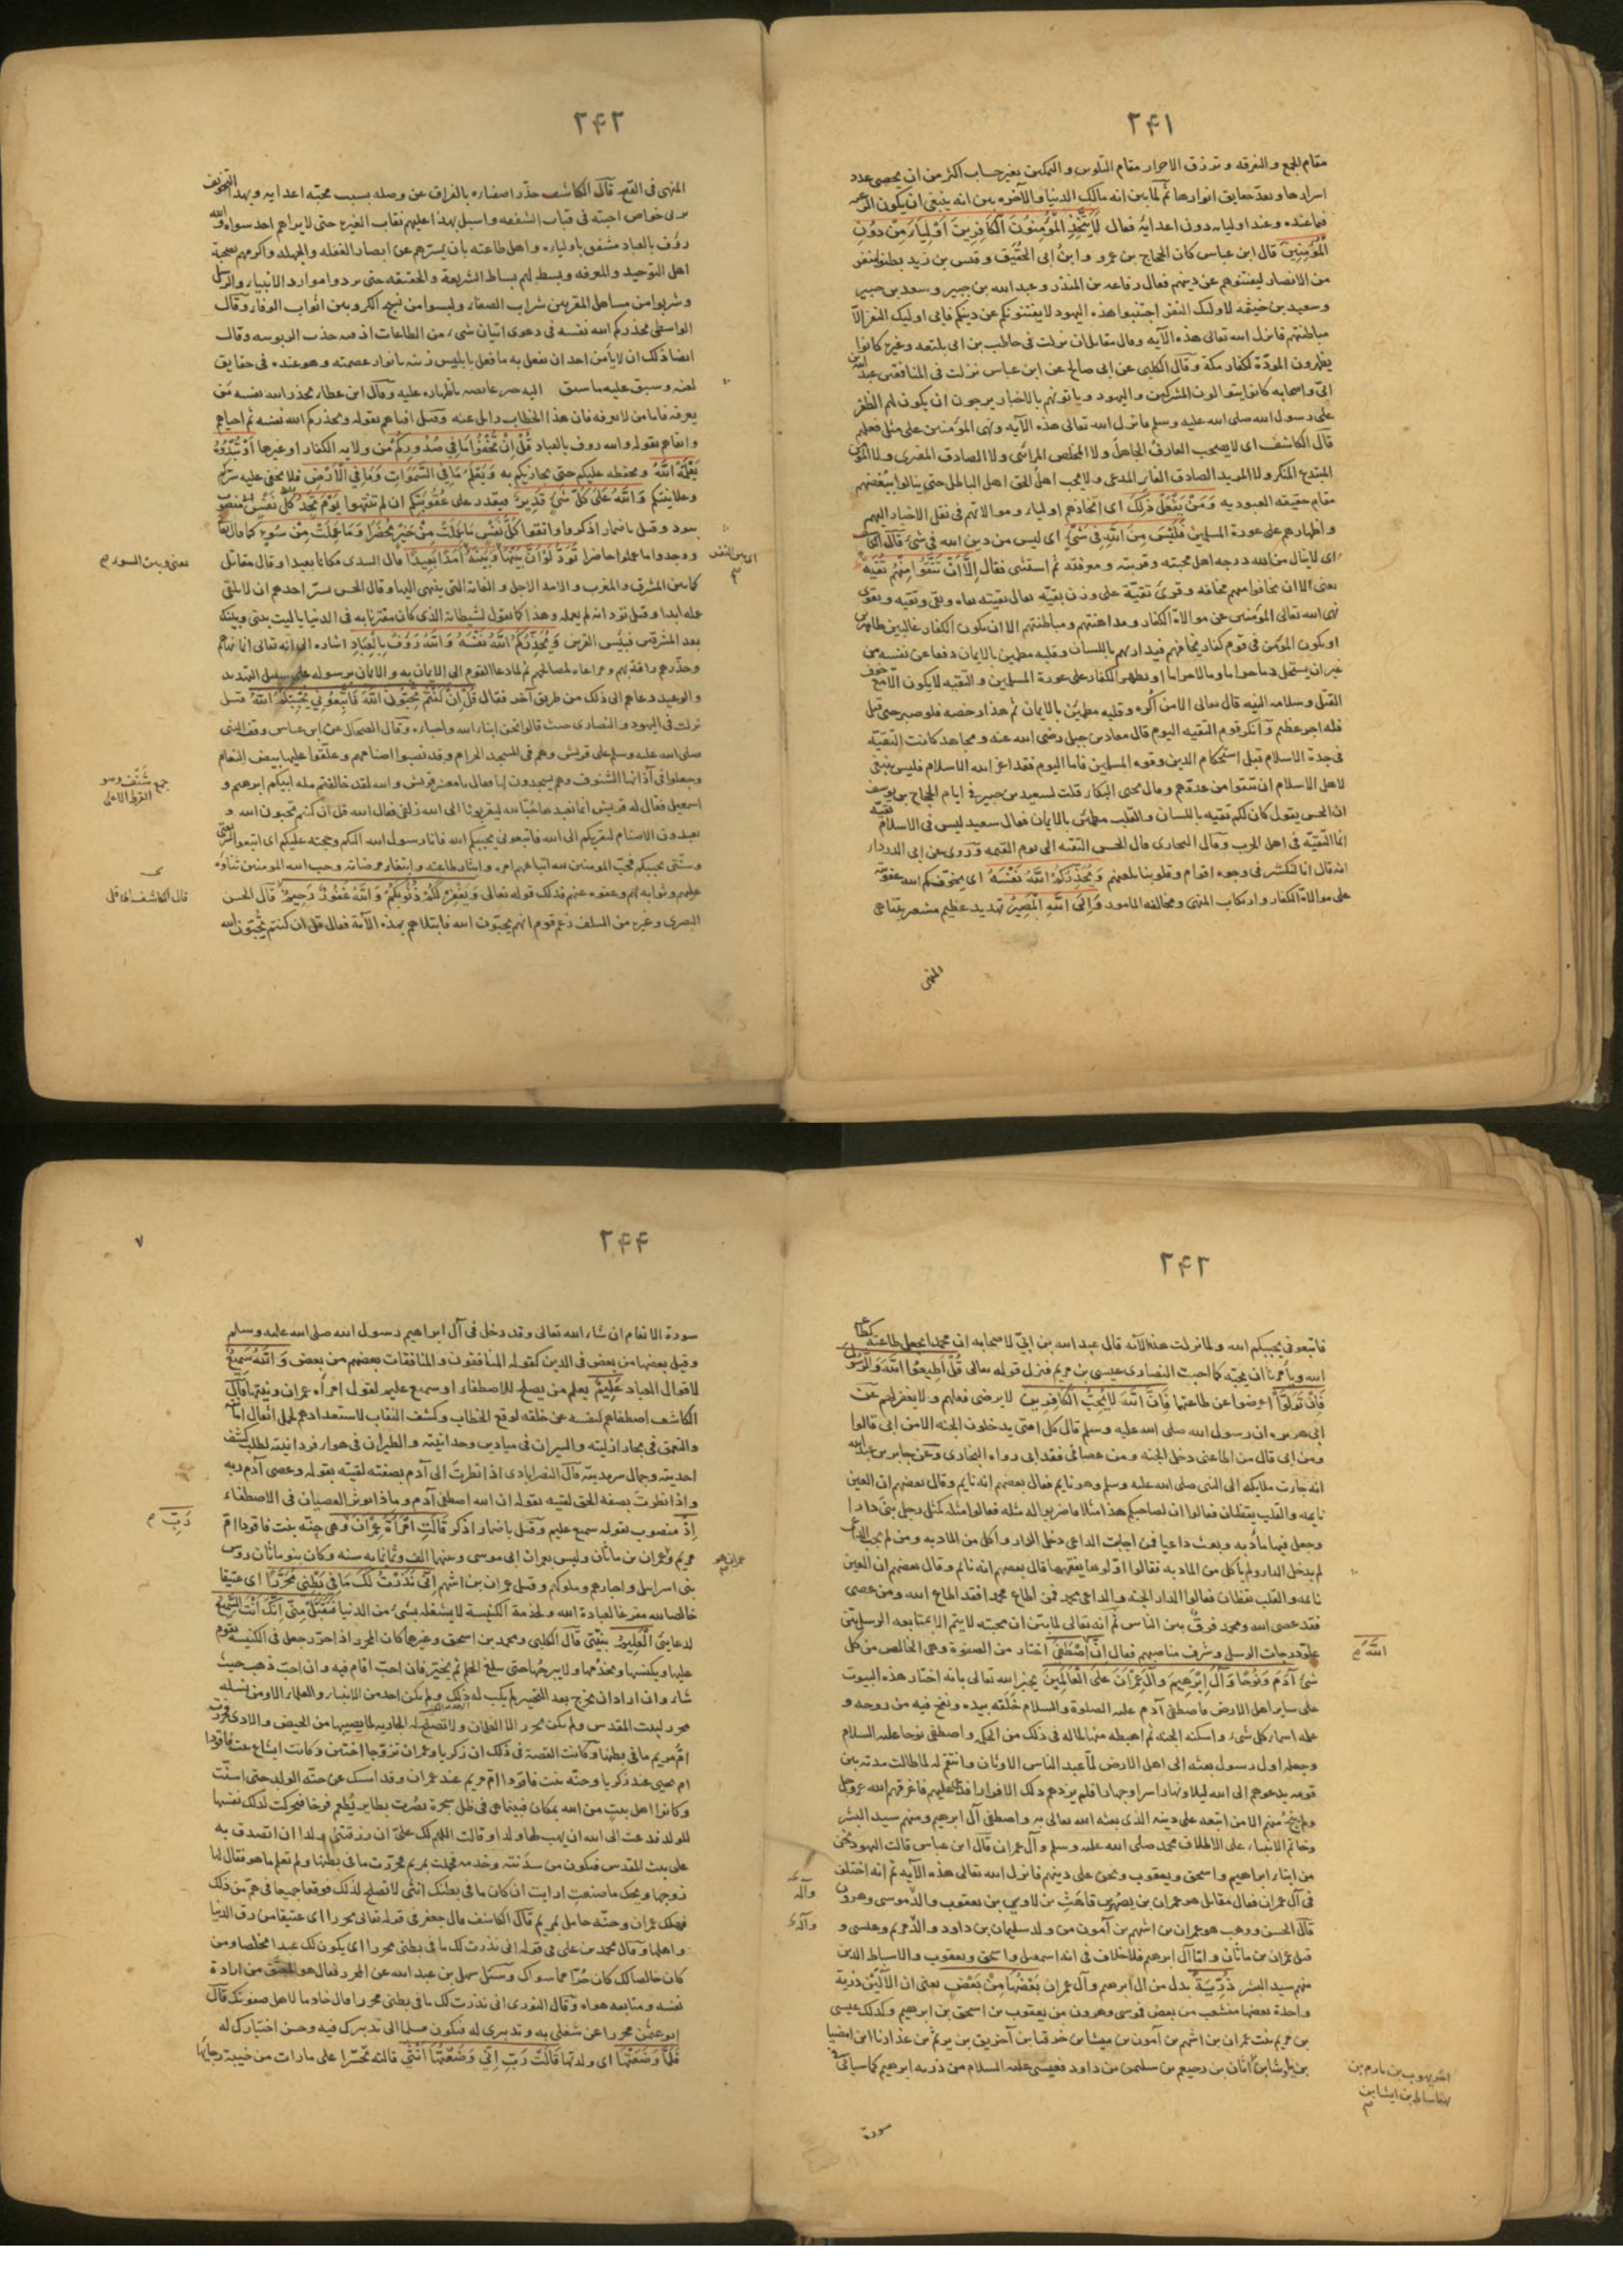 ٢۴١
مقام الجمع والتفرقه وترزق الاحرار مقام التلوين والتمكين بغير حساب اكثر من ان يحصى عدد
اسرارها وبعد حقايق انوارها ثم لما بين انه مالك الدنيا والآخره بين انه ينبغى ان يكون الرغبه
فيما عنده وعند اوليايه دون اعدايه فقال لَا يَتَّخِذِ الْمُؤْمِنُونَ الْكَافِرِينَ أَوْلِيَاءَ مِنْ دُونِ
الْمُؤْمِنِينَ قال ابن عباس كان الحجاج بن عمرو وابن ابى الحقيق وقيس بن زيد بطنوا بنفر
من الانصار ليفتنوهم عن دينهم فقال رفاعه بن المنذر وعبد الله بن جبير وسعد بن
وسعيد بن خيثمه لاولئك النفر اجتنبوا هذه اليهود لا يفتنونكم عن دينكم فابى اوليك النفر الا
مباطنتهم فانزل الله تعالى هذه الآيه وقال مقاتل نزلت فى حاطب بن ابى بلتعه وغيره كانوا
يظهرون المودّة لكفار مكة وقال الكلبى عن ابى صالح عن ابن عباس نزلت فى المنافقين عبد الله بن
ابىّ واصحابه كانوا يتوالون المشركين واليهود وياتونهم بالاخبار يرجون ان يكون لهم الظفر
على رسول الله صلى الله عليه وسلم فانزل الله تعالى هذه الآيه ونهى المؤمنين على مثل فعلهم
قال الكاشف اى لا يصحب العارف الجاهل ولا المخلص المرائى ولا الصادق المفترى ولا المؤمن
المبتدع المنكر ولا المريد الصادق المدعى ولا يحب اهل الحق اهل الباطل حتى ينالوا ببغضهم
مقام حقيقه العبوديه وَمَنْ يَفْعَلْ ذَلِكَ اى اتخاذهم اولياء وموالاتهم فى نقل الاخبار اليهم
واظهارهم على عورة المسلمين فَلَيْسَ مِنَ اللَّهِ فِي شَيْءٍ اى ليس من دين الله فى شىء قال الكاشف
اى لا ينال من الله درجه اهل محبته وقربته ومعرفته ثم استثنى فقال إِلَّا أَنْ تَتَّقُوا مِنْهُمْ تُقَاةً
يعنى الا ان تخافوا منهم مخافه وقرئ تقيّة على وزن بقيّه يقال تقيته تقاه وتقى وتقيه وتقوى
نهى الله تعالى المؤمنين عن موالاة الكفار ومداهنتهم ومباطنتهم الا ان يكون الكفار غالبين ظاهرين
او يكون المؤمن فى قوم كفار يخافهم فيداريهم باللسان وقلبه مطمئن بالايمان دفعا عن نفسه من
غير ان يستحل دما حراما وما لا حراما او يظهر الكفار على عورة المسلمين والتقيه لا يكون الا مع خوف
القتل وسلامه النيه قال تعالى الا من اكره وقلبه مطمئن بالايمان ثم هذا رخصه فلو صبر حتى قتل
فله اجر عظيم وانكر قوم التقيه اليوم قال معاذ بن جبل رضى الله عنه ومجاهد كانت التقيّة
فى جدة الاسلام قبل استحكام الدين وقوه المسلمين فاما اليوم فقد اعز الله الاسلام فليس ينبغى
لاهل الاسلام ان يتقوا من عدوّهم وقال يحيى البكاء قلت لسعيد بن جبير فى ايام الحجاج بن يوسف
ان الحسن يقول كان لكم تقيه باللسان والقلب مطمئن بالايمان فقال سعيد ليس فى الاسلام تقيّه
انما التقيّه فى اهل الحرب وقال البخارى قال الحسن التقيه الى يوم القيمه وروى عن ابى الدرداء
انه قال انا لنكشر فى وجوه اقوام وقلوبنا تلعنهم وَيُحَذِّرُكُمُ اللَّهُ نَفْسَهُ اى يخوّفكم الله عقوبته
على موالاة الكفار وارتكاب المنهى ومخالفه المامور وَإِلَى اللَّهِ الْمَصِيرُ تهديد عظيم مشعر بتناهى
المنهى
٢۴٢
المنهى فى القبح قال الكاشف حذّر اصفياءه بالفراق عن وصله بسبب محبّه اعدايه وبهذا التخويف
خواص احبته فى قباب الشفقه واسبل بهذا عليهم نقاب الغيره حتى لا يراهم احد سواه والله
رؤف بالعباد مشفق باوليايه واهل طاعته بان يسترهم عن ابصار الغفله والجهله واكرمهم بصحبة
اهل التوحيد والمعرفه وبسط لهم بساط الشريعة والحقيقه حتى يردوا موارد الانبياء والرسل
وشربوا من مناهل المقربين شراب الصفاء ولبسوا من نسج الكروبين اثواب الوفاء وقال
الواسطى يحذركم الله نفسه فى دعوى اتيان شىء من الطاعات اذ فيه جذب الربوبيه وقال
ايضا ذلك ان لا يأمن احد ان يفعل به ما فعل بابليس زينه بانوار عصمته وهو عنده فى حقايق
لعنه وسبق عليه ما سبق اليه باظهاره عليه وقال ابن عطاء يحذر الله نفسه مَن
يعرفه فاما من لا يعرفه فان هذا الخطاب زايل عنه وقيل افناهم بقوله ويحذركم الله نفسه ثم احياهم
وابقاهم بقوله والله رؤف بالعباد قُلْ إِنْ تُخْفُوا مَا فِي صُدُورِكُمْ من ولايه الكفار او غيرها أَوْ تُبْدُوهُ
يَعْلَمْهُ اللَّهُ ويحفظه عليكم حتى يجازيكم به وَيَعْلَمُ مَا فِي السَّمَوَاتِ وَمَا فِي الْأَرْضِ فلا يخفى عليه سرّكم
وعلانيتكم وَاللَّهُ عَلَى كُلِّ شَيْءٍ قَدِيرٌ فيقدر على عقوبتكم ان لم تنتهوا يَوْمَ تَجِدُ كُلُّ نَفْسٍ منصوب
بتود وقيل باضمار اذكروا واتقوا كُلُّ نَفْسٍ مَا عَمِلَتْ مِنْ خَيْرٍ مُحْضَرًا وَمَا عَمِلَتْ مِنْ سُوءٍ كما قال
ووجدوا ما عملوا حاضرا تَوَدُّ لَوْ أَنَّ بَيْنَهَا وَبَيْنَهُ أَمَدًا بَعِيدًا قال السدى مكانا بعيدا وقال مقاتل
كما بين المشرق والمغرب والامد الاجل والغايه التى ينتهى اليها وقال الحسن يسرّ احدهم ان لا يلقى
عمله ابدا وقيل تود انه لم يعمله وهذا كما يقول لشيطانه الذى كان مقترنا به فى الدنيا يا ليت بينى وبينك
بعد المشرقين فبئس القرين وَيُحَذِّرُكُمُ اللَّهُ نَفْسَهُ وَاللَّهُ رَؤُفٌ بِالْعِبَادِ اشاره الى انه تعالى انما نهاهم
وحذّرهم رافة بهم ومراعاه لمصالحهم ثم لما دعا القوم الى الايمان به والايمان برسوله على سبيل التهديد
والوعيد دعاهم الى ذلك من طريق آخر فقال قُلْ إِنْ كُنْتُمْ تُحِبُّونَ اللَّهَ فَاتَّبِعُونِي يُحْبِبْكُمُ اللَّهُ قيل
نزلت فى اليهود والنصارى حيث قالوا نحن ابناء الله واحباؤه وقال الضحاك عن ابن عباس وقف النبى
صلى الله عليه وسلم على قريش وهم فى المسجد الحرام وقد نصبوا اصنامهم وعلّقوا عليها بيض النعام
وجعلوا فى آذانها الشنوف وهم يسجدون لها فقال يا معشر قريش والله لقد خالفتم مله ابيكم ابرهيم و
اسمعيل فقال له قريش انما نعبدها حبّا لله ليقربونا الى الله زلفى فقال الله قل ان كنتم تحبون الله و
تعبدون الاصنام ليقربكم الى الله فاتبعونى يحببكم الله فانا رسول الله اليكم وحجته عليكم اى اتبعوا شريعتى
وسنّتى يحببكم فحبّ المومنين لله اتباعهم امره وايثار طاعته وابتغاء مرضاته وحب الله المومنين ثناؤه
عليهم وثوابه لهم وعفوه عنهم فذلك قوله تعالى وَيَغْفِرْ لَكُمْ ذُنُوبَكُمْ وَاللَّهُ غَفُورٌ رَحِيمٌ قال الحسن
البصرى وغيره من السلف زعم قوم انهم يحبّون الله فابتلاهم بهذه الآيه فقال قل ان كنتم تُحِبُّون الله
اى بين النفس
يعنى وبين السوء
جمع شَنْف وهو
القرط الاعلى
قال الكاشف
٢۴٣
فاتبعونى يحببكم الله ولما نزلت هذه الآيه قال عبد الله بن ابىّ لاصحابه ان محمدا يجعل طاعته كطاعة
الله ويأمرنا ان نحبّه كما احبت النصارى عيسى بن مريم فنزل قوله تعالى قُلْ أَطِيعُوا اللَّهَ وَالرَّسُولَ
فَإِنْ تَوَلَّوْا اعرضوا عن طاعتهما فَإِنَّ اللَّهَ لَا يُحِبُّ الْكَافِرِينَ لا يرضى فعلهم ولا يغفر لهم عن
ابى هريره ان رسول الله صلى الله عليه وسلم قال كل امتى يدخلون الجنه الا من ابى قالوا
ومن ابى قال من اطاعنى دخل الجنه ومن عصانى فقد ابى رواه البخارى وعن جابر بن عبد الله
انه جاءت ملايكه الى النبى صلى الله عليه وسلم وهو نايم فقال بعضهم انه نايم وقال بعضهم ان العين
نايمه والقلب يقظان فقالوا ان لصاحبكم هذا مثلا فاضربوا له مثله فقالوا مثله كمثل رجل بنى دارا
وجعل فيها مأدبه وبعث داعيا فمن اجاب الداعى دخل الدار واكل من المادبه ومن لم يجب الداعى
لم يدخل الدار ولم ياكل من المادبه فقالوا اوّلوها يفقهها فقال بعضهم انه نائم وقال بعضهم ان العين
نائمه والقلب يقظان فقالوا الدار الجنه والداعى محمد فمن اطاع محمدا فقد اطاع الله ومن عصى
فقد عصى الله ومحمد فرق بين الناس ثم انه تعالى لما بيّن ان محبته لا يتم الا بمتابعه الرسل بيّن
علوّ درجات الرسل وشرف مناصبهم فقال إِنَّ اصْطَفَى اختار من الصفوة وهى الخالص من كل
شىء آدَمَ وَنُوحًا وَآلَ إِبْرَهِيمَ وَآلَ عِمْرَانَ عَلَى الْعَالَمِينَ يخبر الله تعالى بانه اختار هذه البيوت
على ساير اهل الارض فاصطفى آدم عليه الصلوة والسلام خَلَقه بيده ونفخ فيه من روحه و
علمه اسماء كل شىء واسكنه الجنه ثم اهبطه منها لما له فى ذلك من الحكم واصطفى نوحا عليه السلام
وجعله اول رسول بعثه الى اهل الارض لمّا عبد الناس الاوثان وانتقم له لما طالت مدته بين
قومه يدعوهم الى الله ليلا ونهارا سرا وجهارا فلم يزدهم ذلك الا فرارا فدعا عليهم فاغرقهم الله عز وجل
ولم ينج منهم الا من اتبعه على دينه الذى بعثه الله تعالى به واصطفى آل ابرهيم ومنهم سيد البشر
وخاتم الانبياء على الاطلاق محمد صلى الله عليه وسلم وآل عمران قال ابن عباس قالت اليهود نحن
من ابناء ابراهيم واسحق ويعقوب ونحن على دينهم فانزل الله تعالى هذه الآيه ثم انه اختلف
فى آل عمران فقال مقاتل هو عمران بن يصهر بن قاهث بن لاوى بن يعقوب والد موسى وهرون
قال الحسن ووهب هو عمران بن اشهم بن آمون من ولد سليمان بن داود والد مريم وعيسى و
قيل عمران بن ماثان واما آل ابرهيم فلا خلاف فى انه اسمعيل واسحق ويعقوب والاسباط الذين
منهم سيد البشر ذُرِّيَّةً بدل من آل ابرهيم وآل عمران بَعْضُهَا مِنْ بَعْضٍ يعنى ان الآلَيْن ذرية
واحدة بعضها منشعب من بعض فموسى وهرون من يعقوب بن اسحق بن ابرهيم وكذلك عيسى
بن مريم بنت عمران بن اشهم بن آمون بن ميشا بن حزقيا بن آحزيق بن يوثم بن عذاريا ابن امضيا
بن ياوش ابن آثان بن رحبعم بن سليمن بن داود فعيسى عليه السلام من ذريه ابرهيم كما سياتى فى
سورة
اللَّهَ
والد
والد
٢۴۴
٧
سورة الانعام ان شاء الله تعالى وقد دخل فى آل ابراهيم رسول الله صلى الله عليه وسلم
وقيل بعضها من بعض فى الدين كقوله المنافقون والمنافقات بعضهم من بعض وَاللَّهُ سَمِيعٌ
لاقوال العباد عَلِيمٌ يعلم من يصلح للاصطفاء او سميع عليم لقول امرأه عمران ونيتها قال
الكاشف اصطفاهم لنفسه عن خلقه لوقع الخطاب وكشف النقاب لاستعدادهم لحمل اثقال امانته
والتعمق فى بحار ازليته والسيران فى ميادين وحدانيته والطيران فى هواء فردانيته لطلب كشف
احديته وجمال سرمديته قال النصرابادى اذا نظرت الى آدم بصفته لقيته بقوله وعصى آدم ربه
واذا نظرت بصفه الحق لقيته بقوله ان الله اصطفى آدم وماذا يوثر العصيان فى الاصطفاء
إِذْ منصوب بقوله سميع عليم وقيل باضمار اذكر قَالَتِ امْرَأَةُ عِمْرَانَ وهى حنّه بنت فاقوذا امّ
مريم وعمران بن ماثان وليس بعمران ابى موسى وبينهما الف وثمانمايه سنه وكان بنو ماثان رؤس
بنى اسرايل واحبارهم وملوكهم وقيل عمران بن اشهم إِنِّي نَذَرْتُ لَكَ مَا فِي بَطْنِي مُحَرَّرًا اى عتيقا
خالصا لله مفرغا لعبادة الله ولخدمة الكنيسة لا يشغله بشىء من الدنيا فَتَقَبَّلْ مِنِّي إِنَّكَ أَنْتَ السَّمِيعُ
لدعائى الْعَلِيمُ بنيّتى قال الكلبى ومحمد بن اسحق وغيرهما كان المحرر اذا احرّر جعل فى الكنيسه يقوم
عليها ويكنسها ويخدمها ولا يبرحها حتى يبلغ الحلم ثم يخيّر فان احبّ اقام فيه وان احبّ ذهب حيث
شاء وان اراد ان يخرج بعد التخيير لم يكن له ذلك ولم يكن احد من الانبياء والعلماء الا ومن نسله
محرر لبيت المقدس ولم يكن محرر الا الغلمان ولا تصلح له الجاريه لما يصيبها من الحيض والاذى فحررت
امّ مريم ما فى بطنها وكانت القصة فى ذلك ان زكريا وعمران تزوّجا اختين وكانت ايشاع بنت فاقوذا
ام يحيى عند زكريا وحنّه بنت فاقوذا امّ مريم عند عمران وقد امسك عن حنّه الولد حتى اسنّت
وكانوا اهل بيت من الله بمكان فبينما هى فى ظل شجرة بصُرت بطاير يُطعم فرخا فتحركت لذلك نفسها
للولد فدعت الى الله ان يهب لها ولدا وقالت اللهم لك علىّ ان رزقتنى ولدا ان اتصدق به
على بيت المقدس فيكون من سدَنته وخدمه فحملت بمريم فحررت ما فى بطنها ولم تعلم ما هو فقال لها
زوجها ويحك ما صنعتِ ارايت ان كان ما فى بطنك انثى لا تصلح لذلك فوقعا جميعا فى همّ من ذلك
فهلك عمران وحنّه حامل بمريم قال الكاشف قال جعفر فى قوله تعالى محررا اى عتيقا من رق الدنيا
واهلها وقال محمد بن على فى قوله انى نذرت لك ما فى بطنى محررا اى يكون لك عبدا مخلصا ومن
كان خالصا لك كان حُرّا مما سواك وسئل سهل بن عبد الله عن المحرر فقال هو المعتق من ارادة
نفسه ومتابعه هواه وقال النورى انى نذرت لك ما فى بطنى محررا قال خادما لاهل صفوتك قال
ابو عثمن محررا عن شغلى به وتدبيرى له فيكون مسلما الى تدبيرك فيه وحسن اختيارك له
فَلَمَّا وَضَعَتْهَا اى ولدتها قَالَتْ رَبِّ إِنِّي وَضَعْتُهَا أُنْثَى قالته تحسّرا على ما رات من خيبة رجايها
عمران هو
رَبِّ